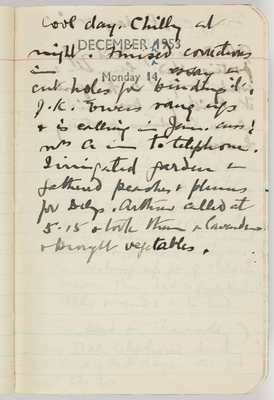 Cool day. Chilly at
DECEMBER 1953
night. Finished corrections
Monday 14
in essay &
cut holes for binding it.
J.K. rang up
& is calling in Jan.
in to telephone.
I irrigated garden &
gathered peaches & plums
for Dilys. Arthur called at
5.15 & took them & lavender
& brought vegetables.